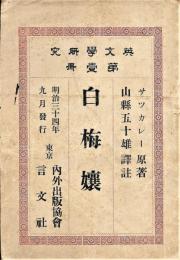 英文學研究
第壹冊
サツカレー 原著
山縣五十雄 譯註
白梅孃
明治三十四年
九月發行
東京
內外出版協會
言文社